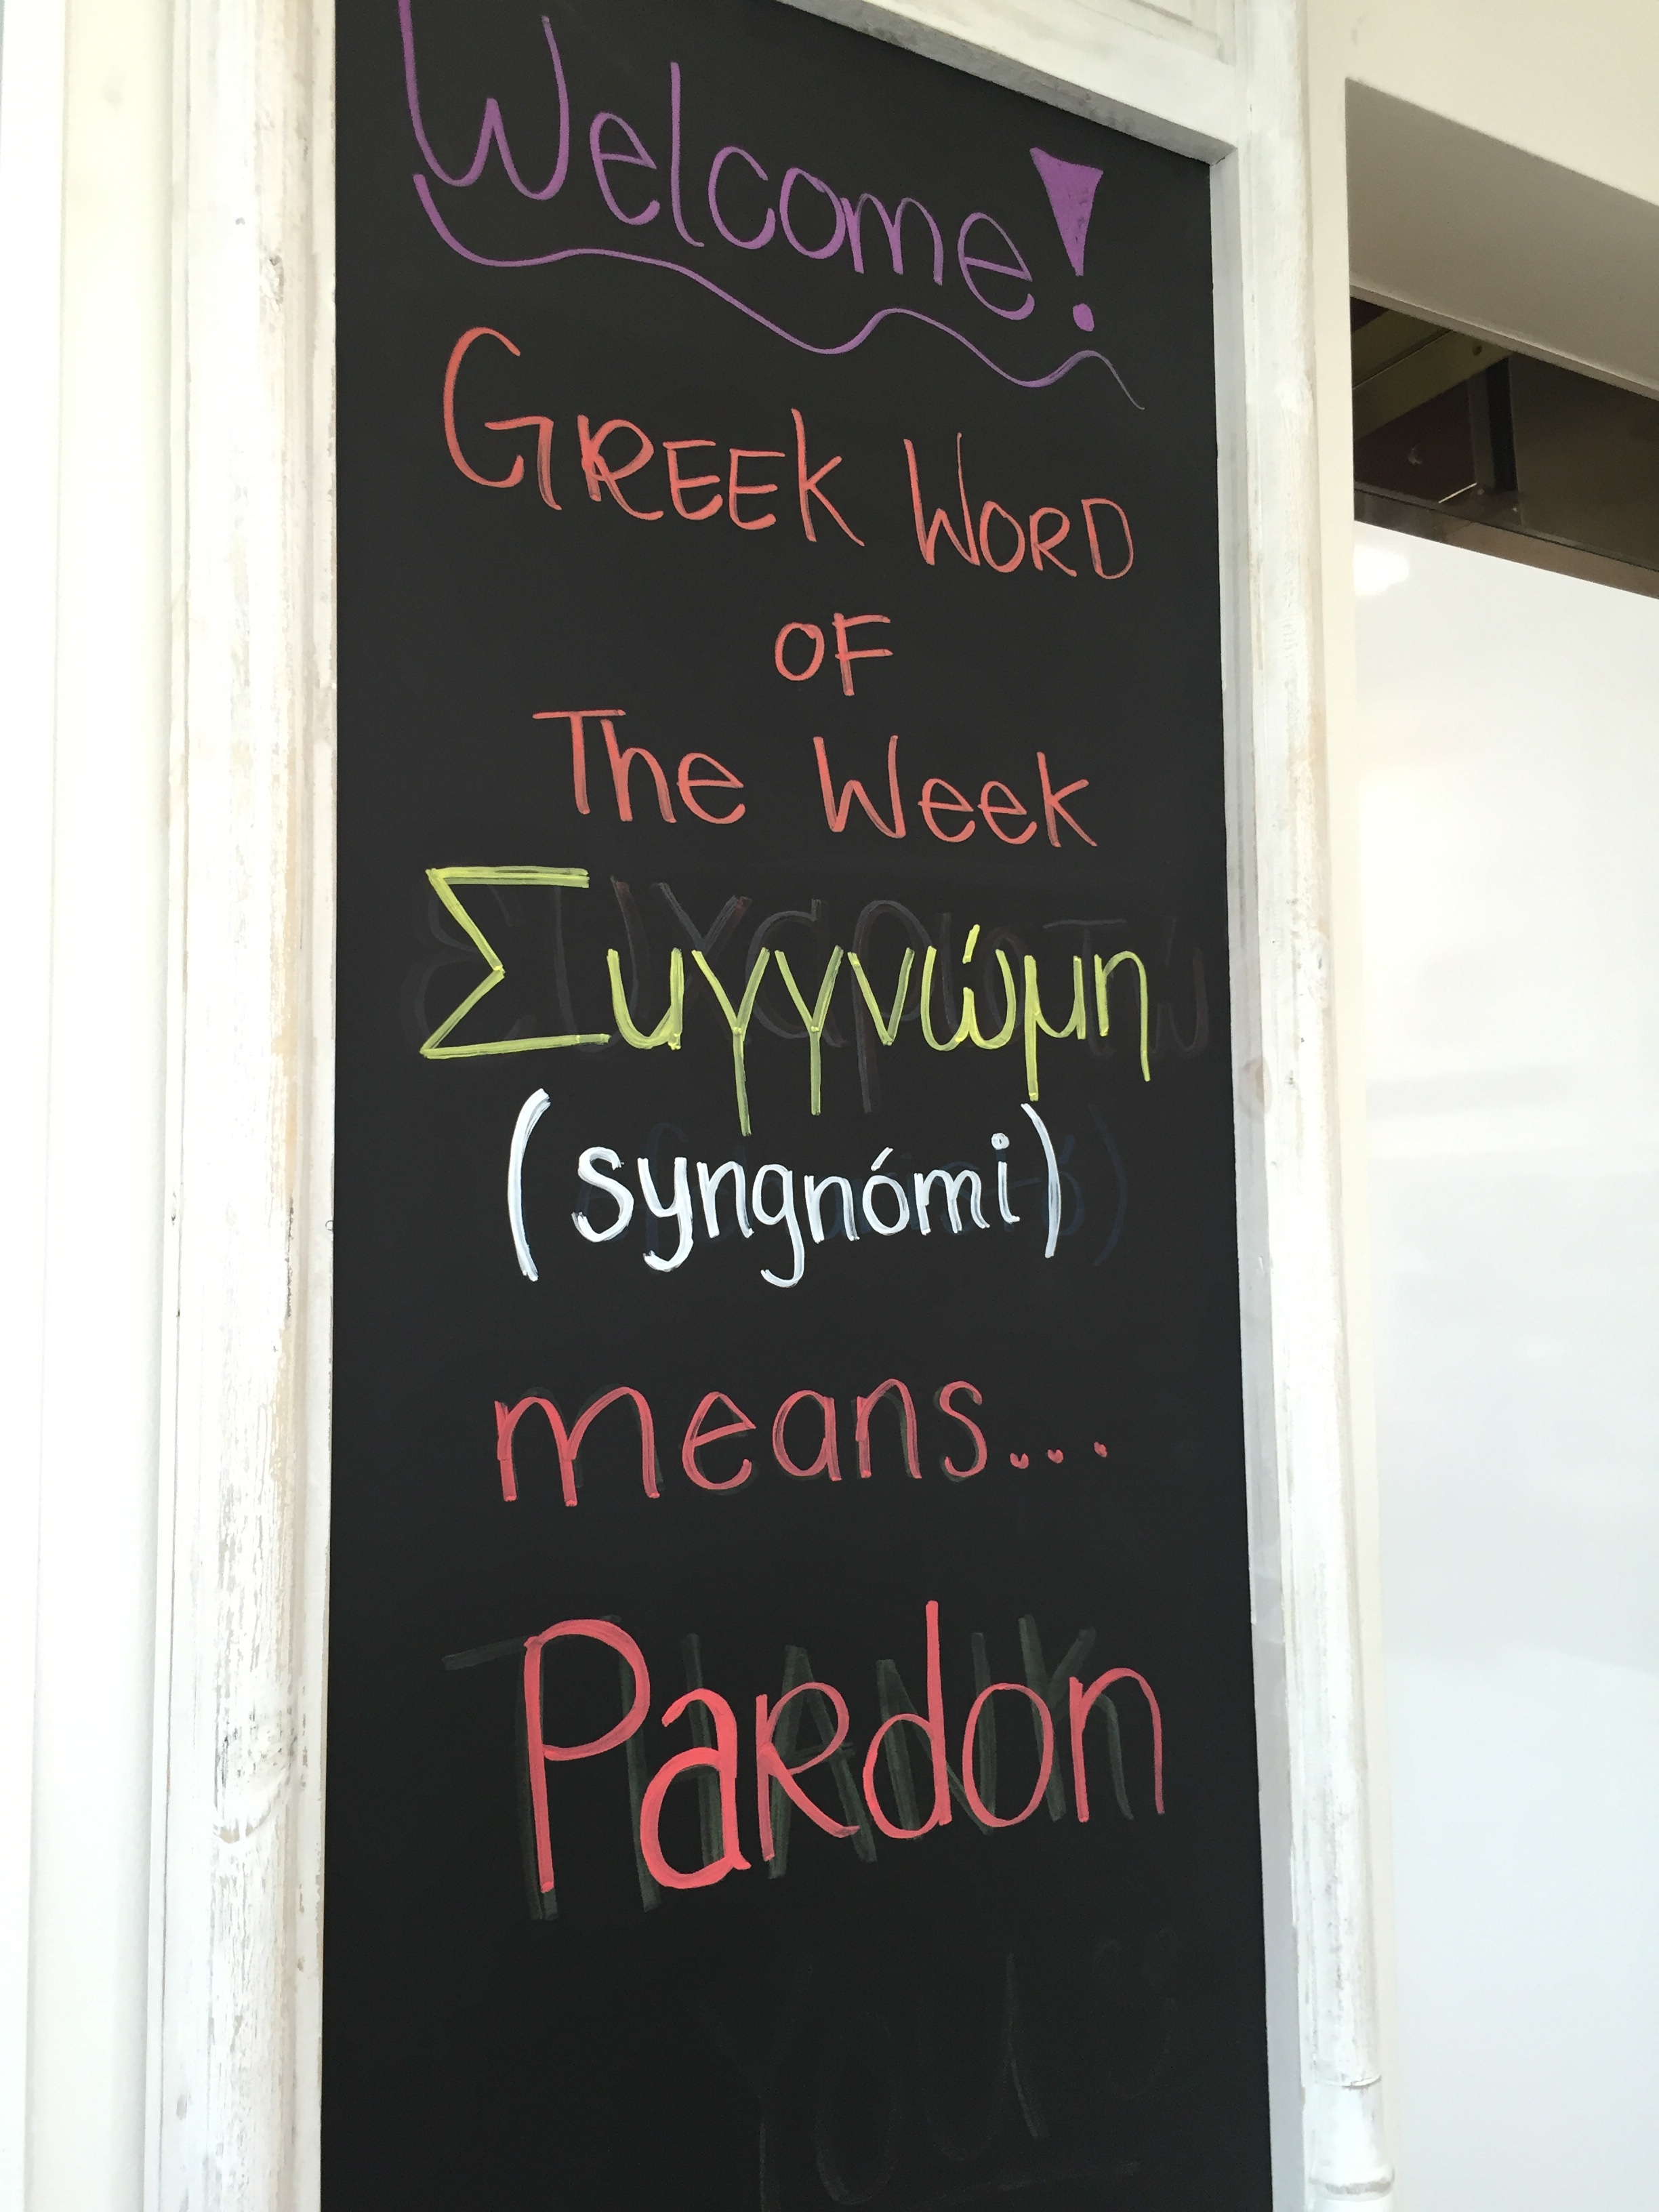 Welcome!
GREEK WORD
OF
The Week
Συγγνώμη
(syngnómi)
means...
Pardon